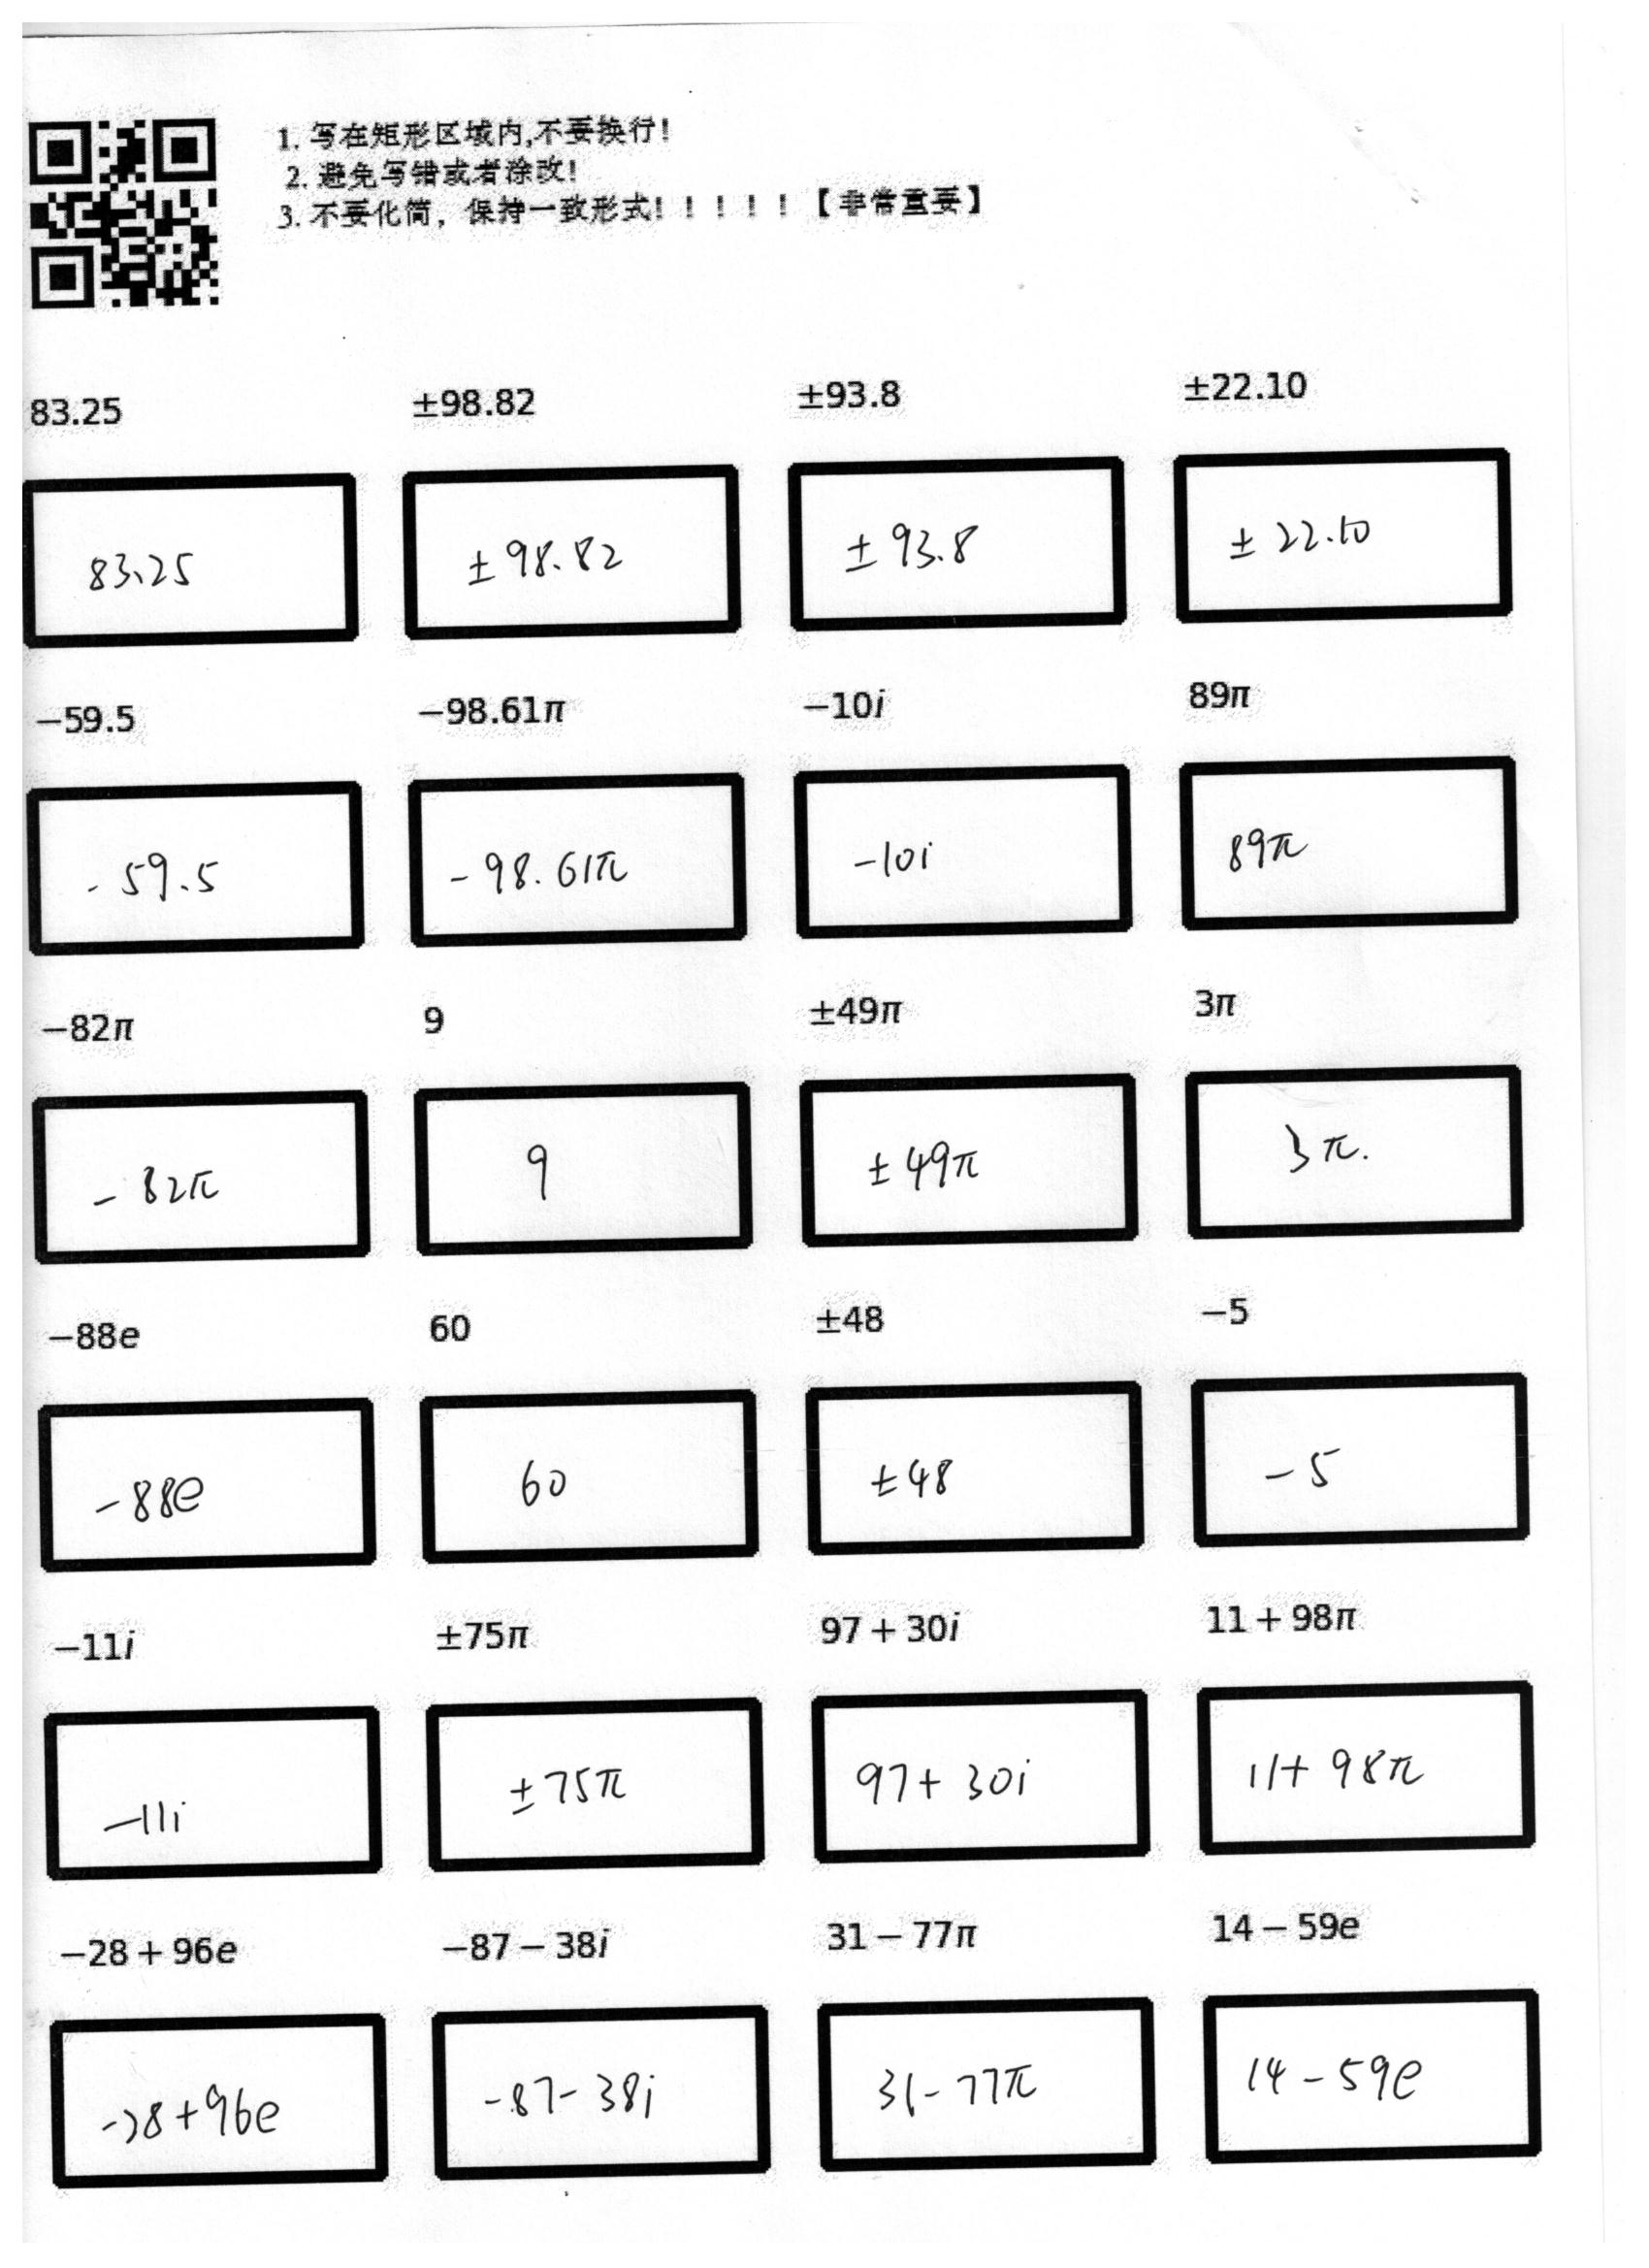 1. 写在矩形区域内,不要换行!
2. 避免写错或者涂改!
3. 不要化简，保持一致形式!！！！！【非常重要】
83.25 ±98.82 ±93.8 ±22.10
83.25 ±98.82 ±93.8 ±22.10
−59.5 −98.61π −10i 89π
-59.5 -98.61π -10i 89π
−82π 9 ±49π 3π
-82π 9 ±49π 3π.
−88e 60 ±48 −5
-88e 60 ±48 -5
−11i ±75π 97+30i 11+98π
-11i ±75π 97+30i 11+98π
−28+96e −87−38i 31−77π 14−59e
-28+96e -87-38i 31-77π 14-59e